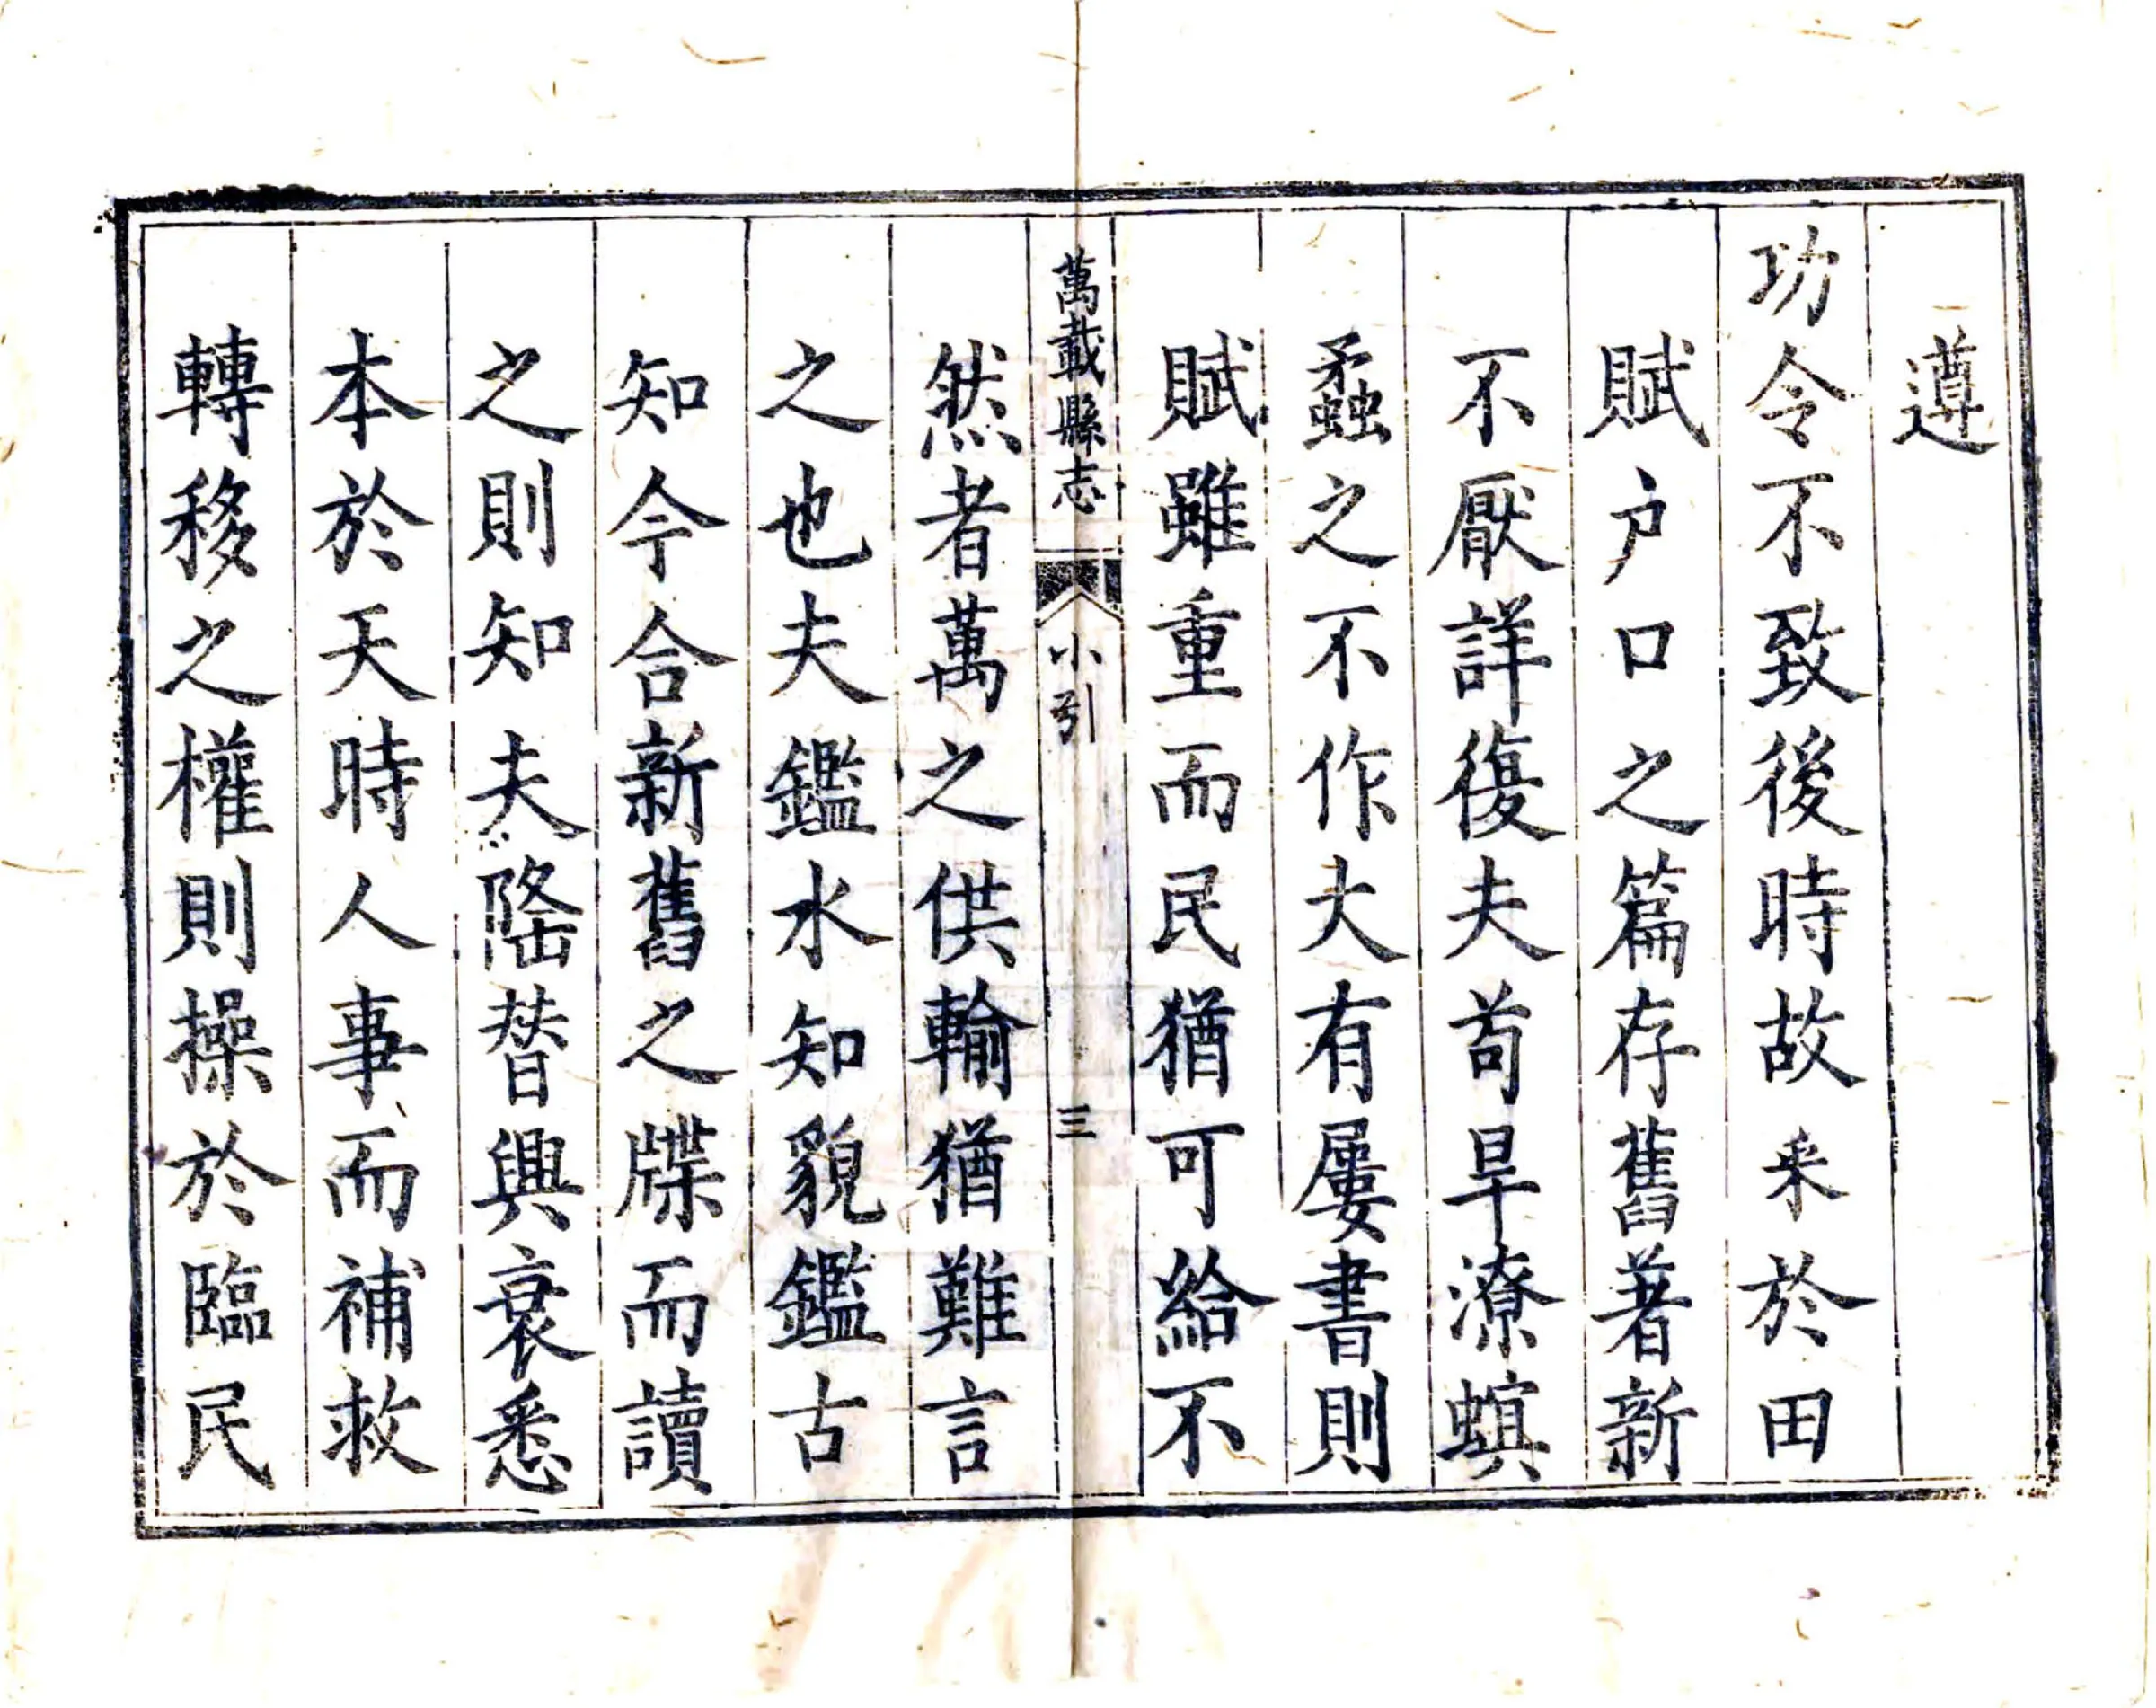 遵
功令不致後時故釆於田
賦户口之篇存舊著新
不厭詳復夫苟旱潦螟
蟊之不作大有屢書則
賦雖重而民猶可給不
萬載縣志 小引 三
然者萬之供輸猶難言
之也夫鑑水知貌鑑古
知今合新舊之牒而讀
之則知夫隆替興衰悉
本於天時人事而補救
轉移之權則操於臨民